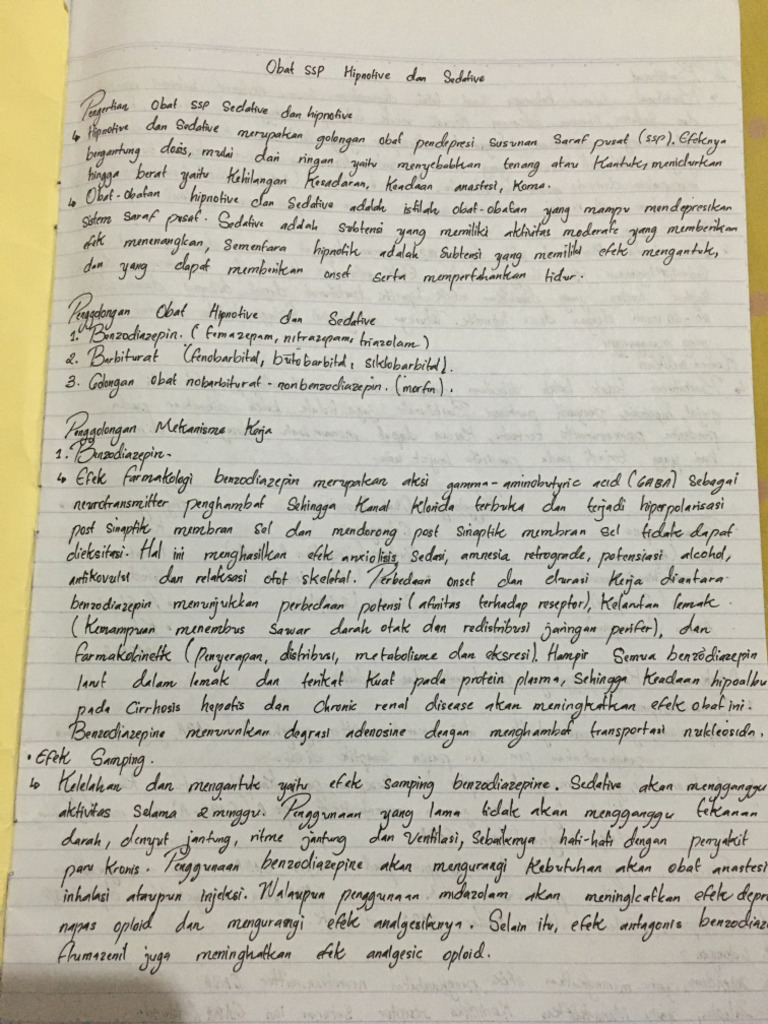 Obat SSP Hipnotive dan Sedative
Pengertian Obat SSP Sedative dan hipnotive
↳ Hipnotive dan Sedative merupakan golongan obat pendepresi susunan Saraf pusat (SSP). Efeknya
bergantung dosis, mulai dari ringan yaitu menyebabkan tenang atau Kantuk, menidurkan
hingga berat yaitu Kehilangan Kesadaran, Keadaan anastesi, Koma.
↳ Obat-obatan hipnotive dan Sedative adalah istilah obat-obatan yang mampu mendepresikan
sistem saraf pusat. Sedative adalah subtensi yang memiliki aktivitas moderate yang memberikan
efek menenangkan, Sementara hipnotik adalah Subtensi yang memiliki efek mengantuk,
dan yang dapat memberikan onset serta mempertahankan tidur.
Penggolongan Obat Hipnotive dan Sedative
1. Benzodiazepin. (temazepam, nitrazepam, triazolam)
2. Barbiturat (fenobarbital, butobarbital, siklobarbital).
3. Golongan obat nobarbiturat - nonbenzodiazepin. (morfin).
Penggolongan Mekanisme Kerja
1. Benzodiazepin.
↳ Efek farmakologi benzodiazepin merupakan aksi gamma-aminobutyric acid (GABA) Sebagai
neurotransmitter penghambat Sehingga Kanal Klorida terbuka dan terjadi hiperpolarisasi
post sinaptik membran Sel dan mendorong post Sinaptik membran Sel tidak dapat
dieksitasi. Hal ini menghasilkan efek anxiolisis, Sedasi, amnesia retrograde, potensiasi alcohol,
antikovulsi dan relaksasi otot skeletal. Perbedaan onset dan durasi Kerja diantara
benzodiazepin menunjukkan perbedaan potensi (afinitas terhadap reseptor), Kelarutan lemak
(Kemampuan menembus Sawar darah otak dan redistribusi jaringan perifer), dan
farmakokinetik (penyerapan, distribusi, metabolisme dan eksresi). Hampir Semua benzodiazepin
larut dalam lemak dan terikat Kuat pada protein plasma, Sehingga Keadaan hipoalbu
pada Cirrhosis hepatis dan Chronic renal disease akan meningkatkan efek obat ini.
Benzodiazepine menurunkan degrasi adenosine dengan menghambat transportasi nukleosida.
• Efek Samping.
↳ Kelelahan dan mengantuk yaitu efek samping benzodiazepine. Sedative akan mengganggu
aktivitas Selama 2 minggu. Penggunaan yang lama tidak akan mengganggu tekanan
darah, denyut jantung, ritme jantung dan Ventilasi, Sebaiknya hati-hati dengan penyakit
paru Kronis. Penggunaan benzodiazepine akan mengurangi Kebutuhan akan obat anastesi
inhalasi ataupun injeksi. Walaupun penggunaan midazolam akan meningkatkan efek depre
napas opioid dan mengurangi efek analgesiknya. Selain itu, efek antagonis benzodiaz
flumazenil juga meningkatkan efek analgesic opioid.